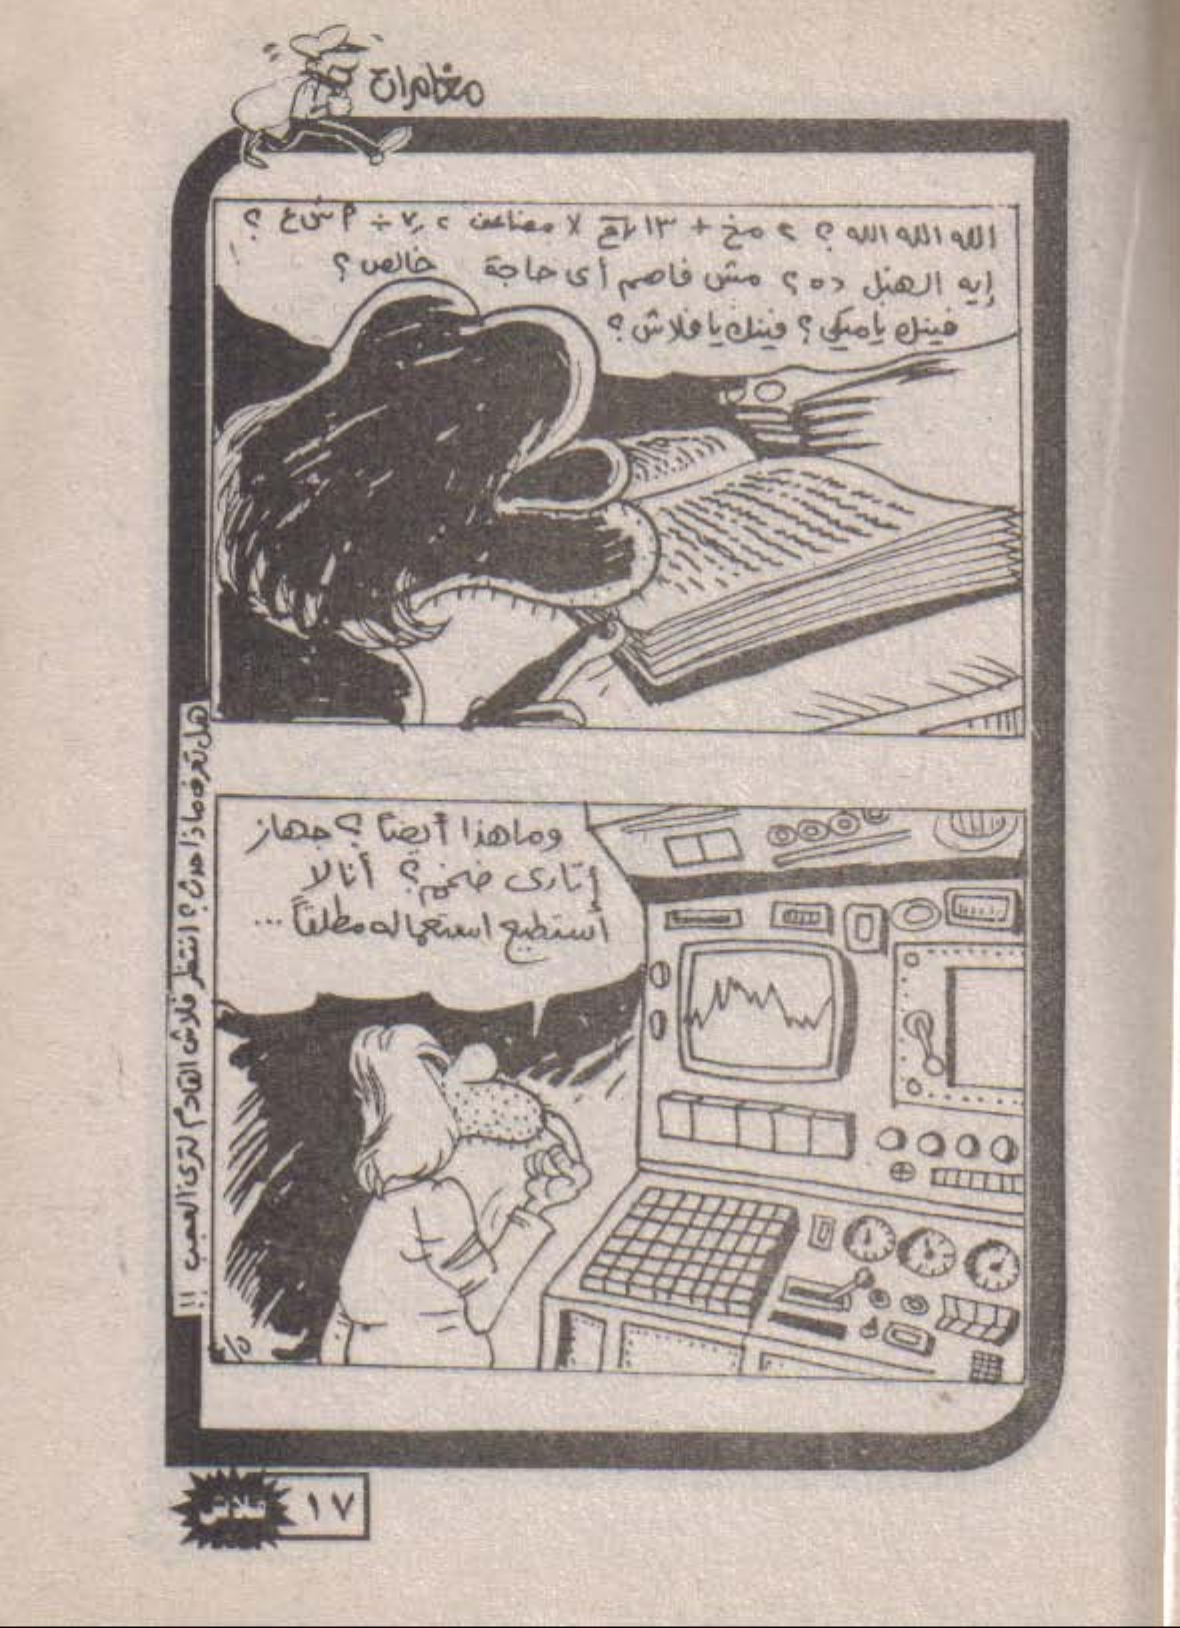 مغامرات
الله الله الله ؟ ٢ مخ + ١٣ × مضاعف ٢ ÷ ٧ ؟
إيه الهبل ده ؟ مش فاهم أى حاجة خالص ؟
فينك يا ميكى ؟ فينك يا فلاش ؟
وما هذا أيضاً ؟ جهاز
إنارى ضخم ؟ أنا لا
أستطيع استعماله مطلقاً ...
هل تعرف ماذا حدث ؟ انتظر فلاش القادم لترى العجب !!
١٧
فلاش